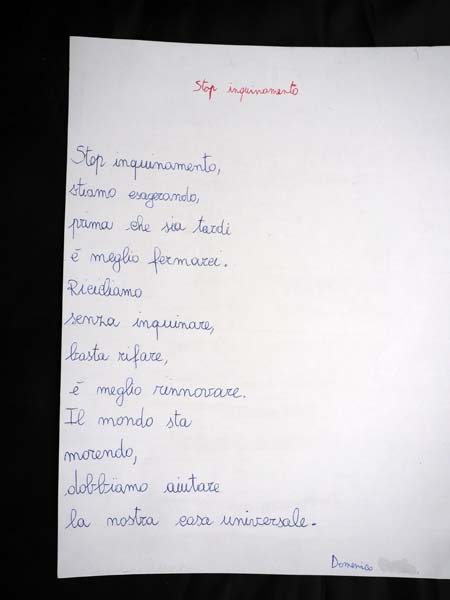 Stop inquinamento
Stop inquinamento,
stiamo esagerando,
prima che sia tardi
é meglio fermarci.
Ricicliamo
senza inquinare,
basta rifare,
é meglio rinnovare.
Il mondo sta
morendo,
dobbiamo aiutare
la nostra casa universale.
Domenico